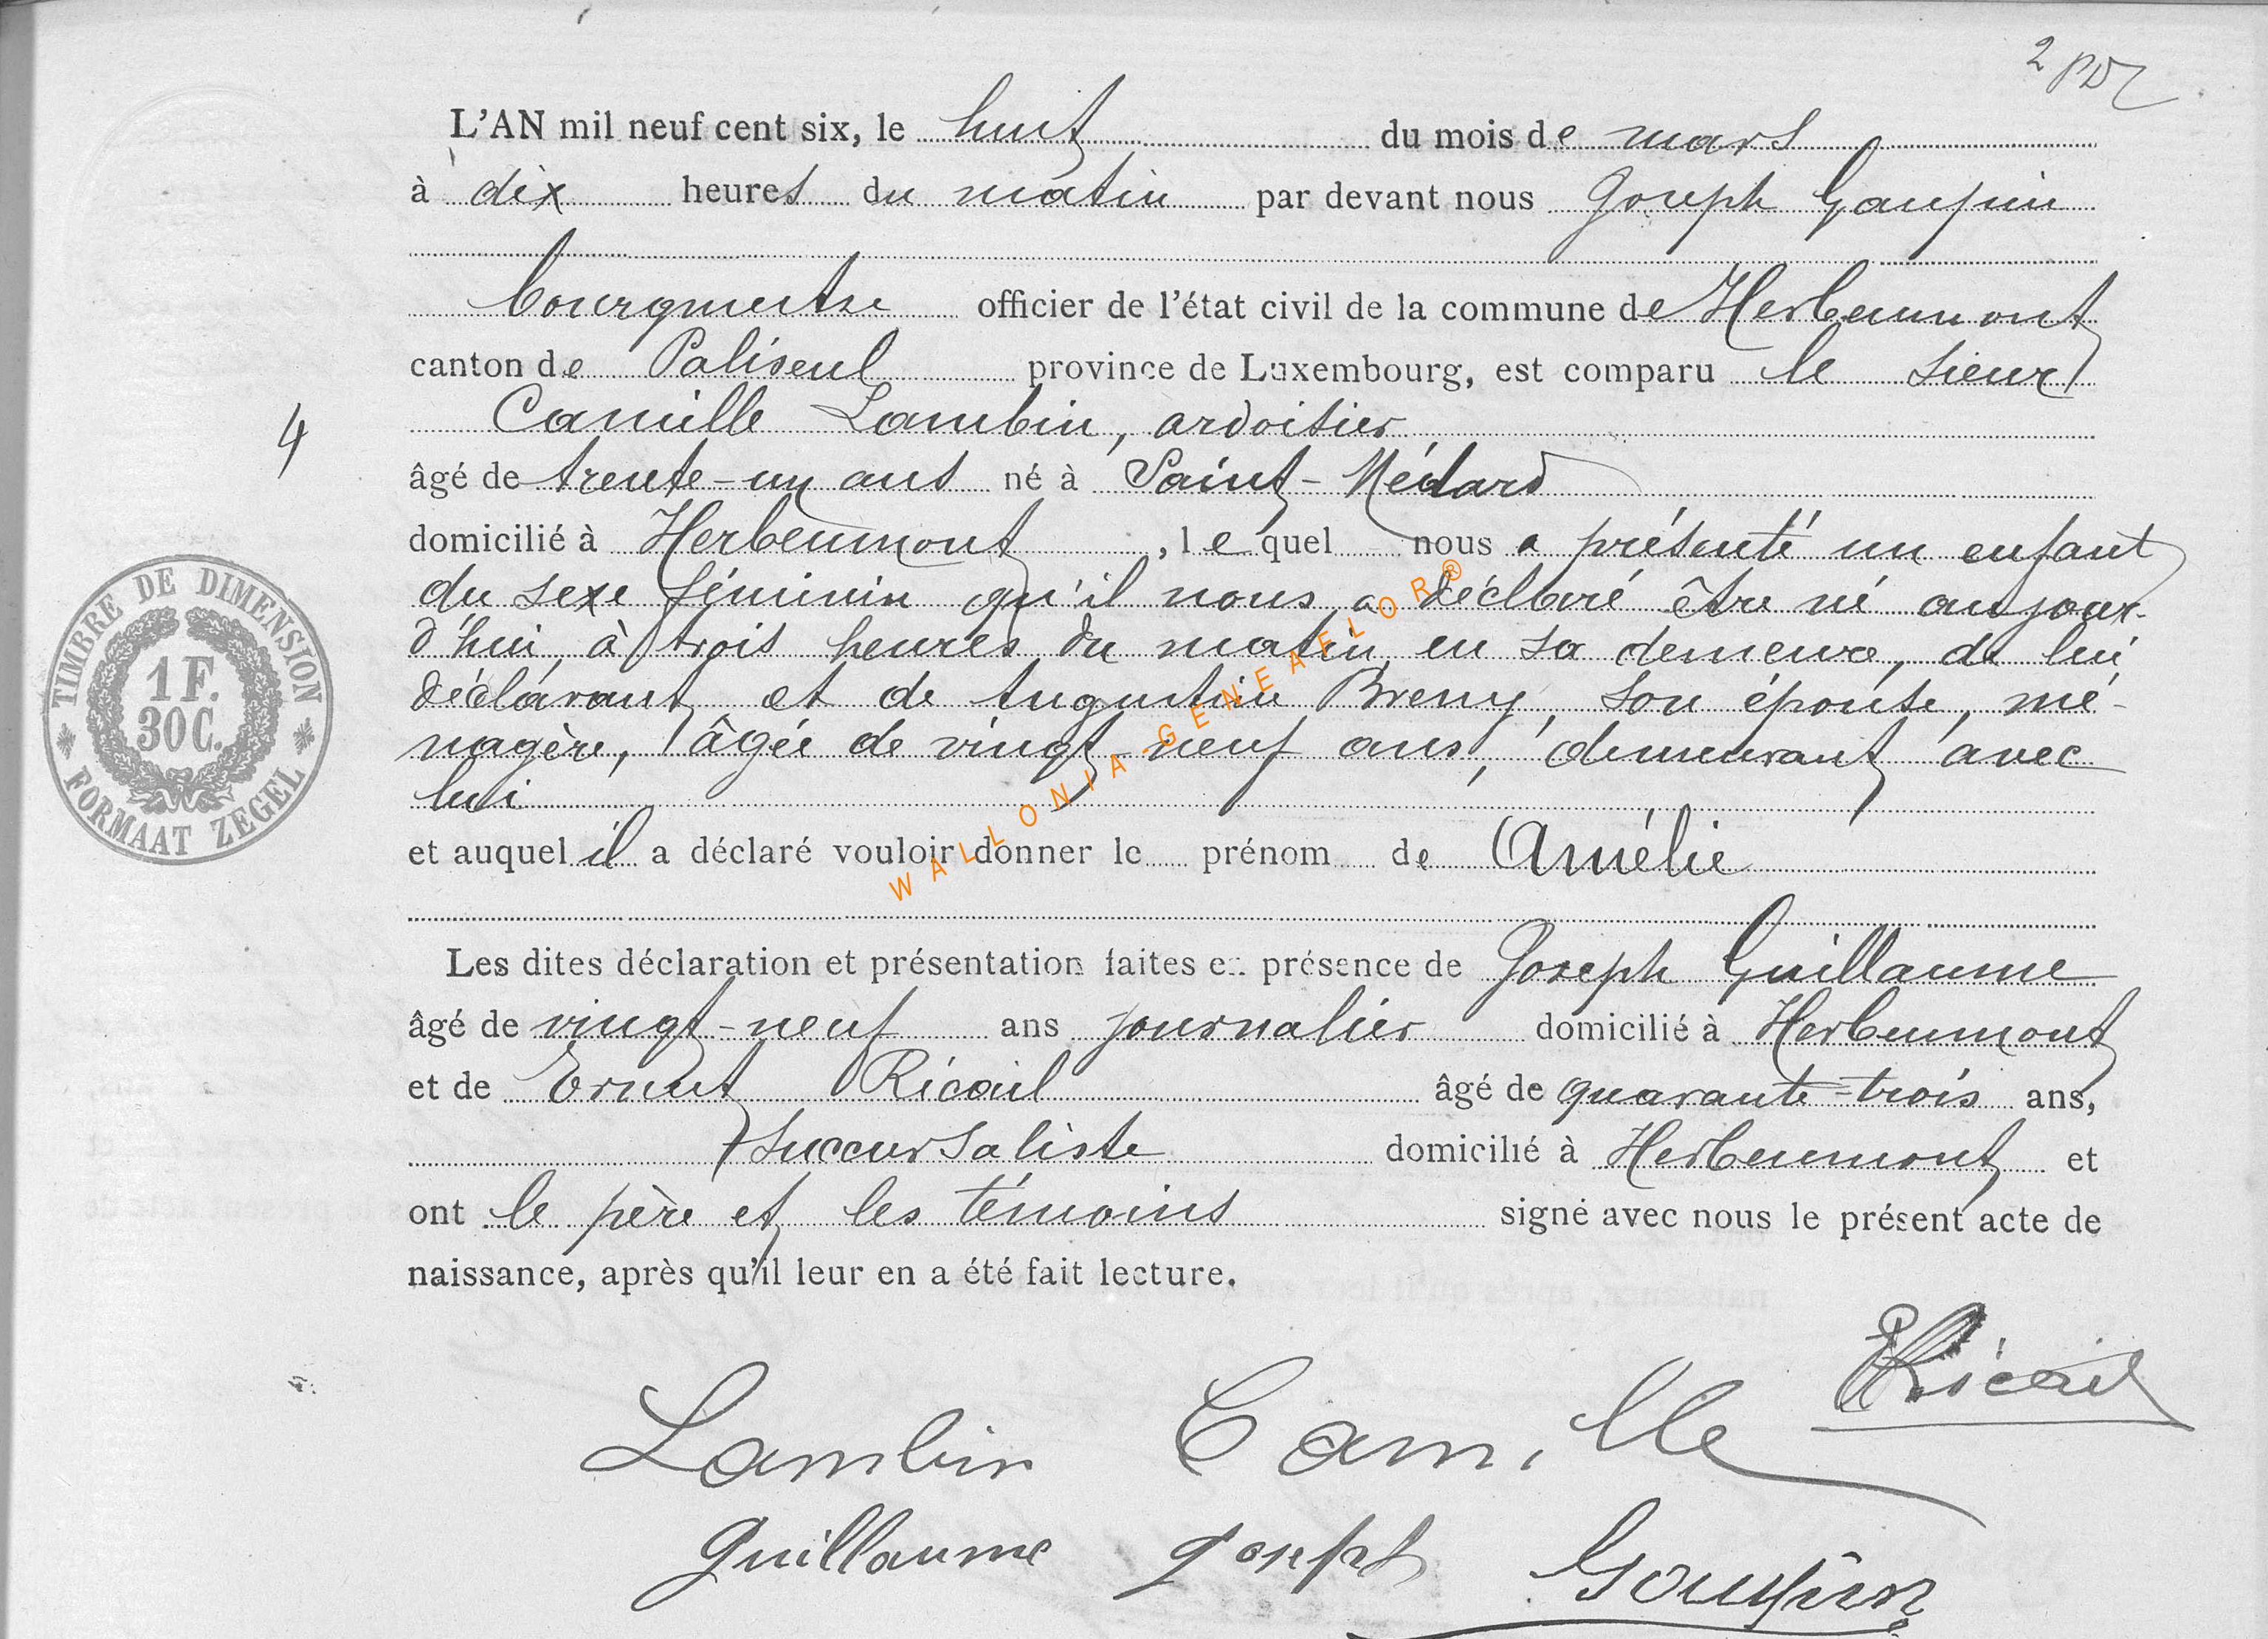 2
L'AN mil neuf cent six, le huit du mois de mars
à dix heures du matin par devant nous Joseph
bourgmestre officier de l'état civil de la commune de Herbeumont
canton de Paliseul province de Luxembourg, est comparu le sieur
Camille Lambin, ardoisier
4
âgé de trente-un ans né à Saint-Médard
domicilié à Herbeumont, lequel nous a présenté un enfant
du sexe féminin qu'il nous a déclaré être né aujour-
d'hui, à trois heures du matin, en sa demeure, de lui
déclarant et de Augustine Breny, son épouse, mé-
nagère, âgée de vingt-neuf ans, demeurant avec
lui
et auquel il a déclaré vouloir donner le prénom de Amélie
Les dites déclaration et présentation faites en présence de Joseph Guillaume
âgé de vingt-neuf ans journalier domicilié à Herbeumont
et de Ernest Ricail âgé de quarante-trois ans,
succursaliste domicilié à Herbeumont et
ont le père et les témoins signé avec nous le présent acte de
naissance, après qu'il leur en a été fait lecture.
TIMBRE DE DIMENSION
1 F.
30 C.
FORMAAT ZEGEL
WALLONIA-GENEAFLOR®
ERicail
Lambin Camille
Guillaume Joseph